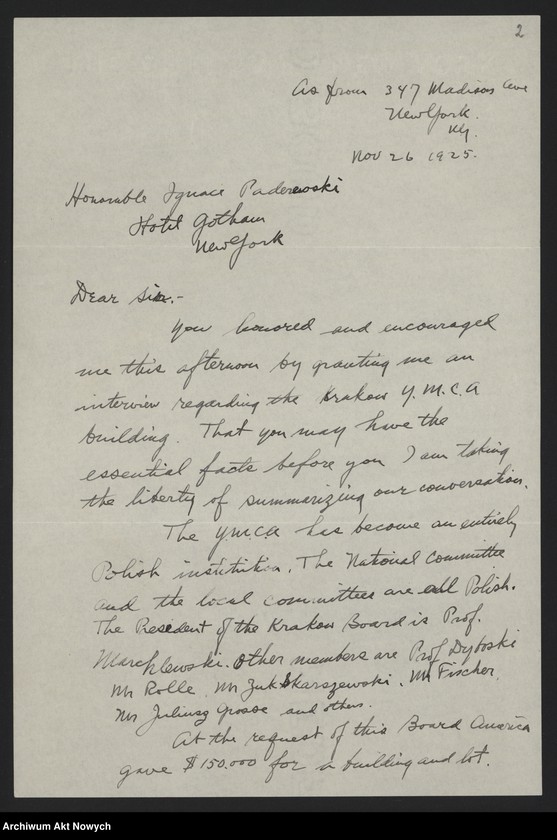 2
As from 347 Madison Ave
New York.
Ny.
Nov 26 1925.
Honorable Ignace Paderewski
Hotel Gotham
New York
Dear Sir.-
You honored and encouraged
me this afternoon by granting me an
interview regarding the Krakow Y.M.C.A
building. That you may have the
essential facts before you I am taking
the liberty of summarizing our conversation.
The YMCA has become an entirely
Polish institution. The National Committee
and the local committees are all Polish.
The President of the Krakow Board is Prof.
Marchlewski. Other members are Prof Dyboski
Mr Rolle, Mr Zuk Skarszewski, Mr Fischer,
Mr Juliusz Grosse and others.
At the request of this Board America
gave $150.000 for a building and lot.
Archiwum Akt Nowych